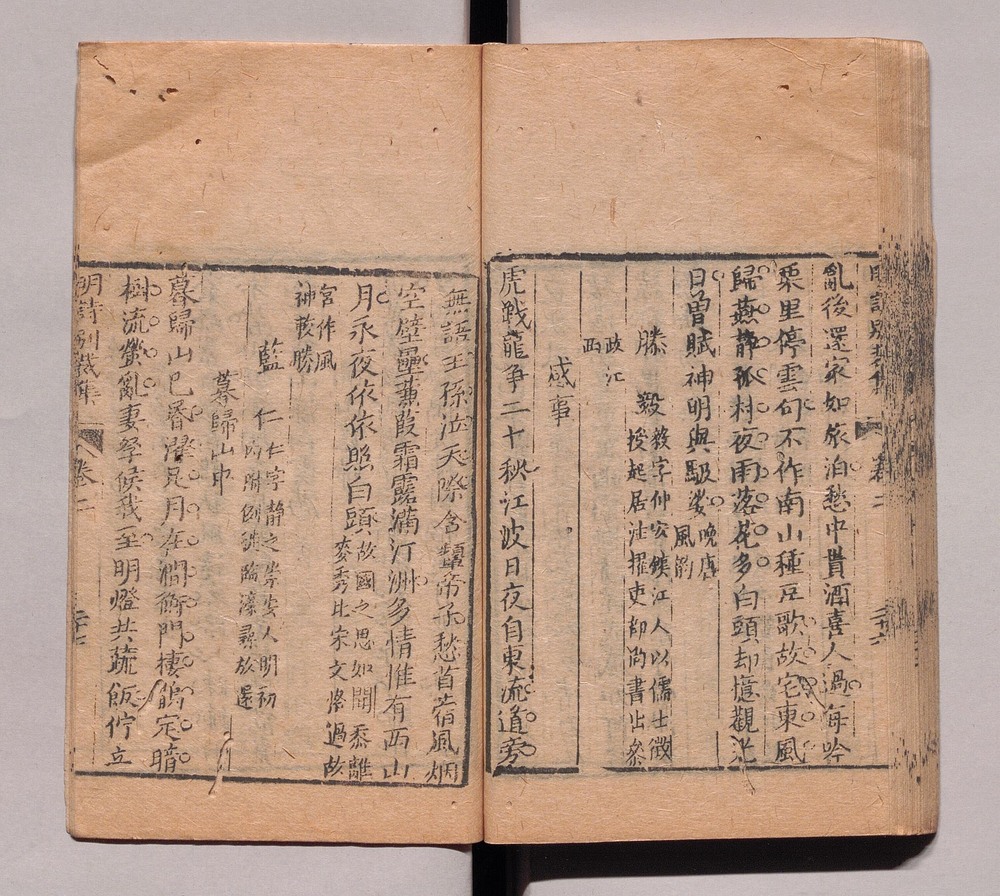 明詩別裁集 卷二 二十六
亂後還家如旅泊愁中貰酒喜人過每吟
栗里停雲句不作南山種豆歌故宅東風
歸燕静孤村夜雨落花多白頭却憶觀光
日曾賦神明與馺娑晚唐
風韵
滕毅毅字仲宏鎮江人以儒士徵
授起居注擢吏部尚書出參
政江
西
感事
虎戰龍争二十秋江波日夜自東流道旁
無語王孫泣天際含顰帝子愁首蓿風烟
空壁壘蒹葭霜露滿汀洲多情惟有西山
月永夜依依照白頭故國之思如聞黍離
麥秀比宋文憲過故
宮作風
神較勝
藍仁仁字静之崇安人明初
内附例徙臨濠尋放還
暮歸山中
暮歸山已昏濯足月在澗衡門棲鵲定暗
樹流螢亂妻孥候我至明燈共疏飯佇立
明詩別裁集 卷二 二十七